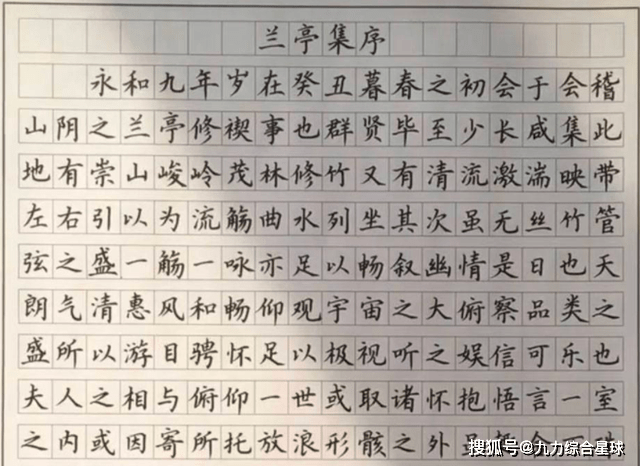 兰亭集序
永和九年岁在癸丑暮春之初会于会稽
山阴之兰亭修禊事也群贤毕至少长咸集此
地有崇山峻岭茂林修竹又有清流激湍映带
左右引以为流觞曲水列坐其次虽无丝竹管
弦之盛一觞一咏亦足以畅叙幽情是日也天
朗气清惠风和畅仰观宇宙之大俯察品类之
盛所以游目骋怀足以极视听之娱信可乐也
夫人之相与俯仰一世或取诸怀抱悟言一室
之内或因寄所托放浪形骸之外
搜狐号@九力综合星球